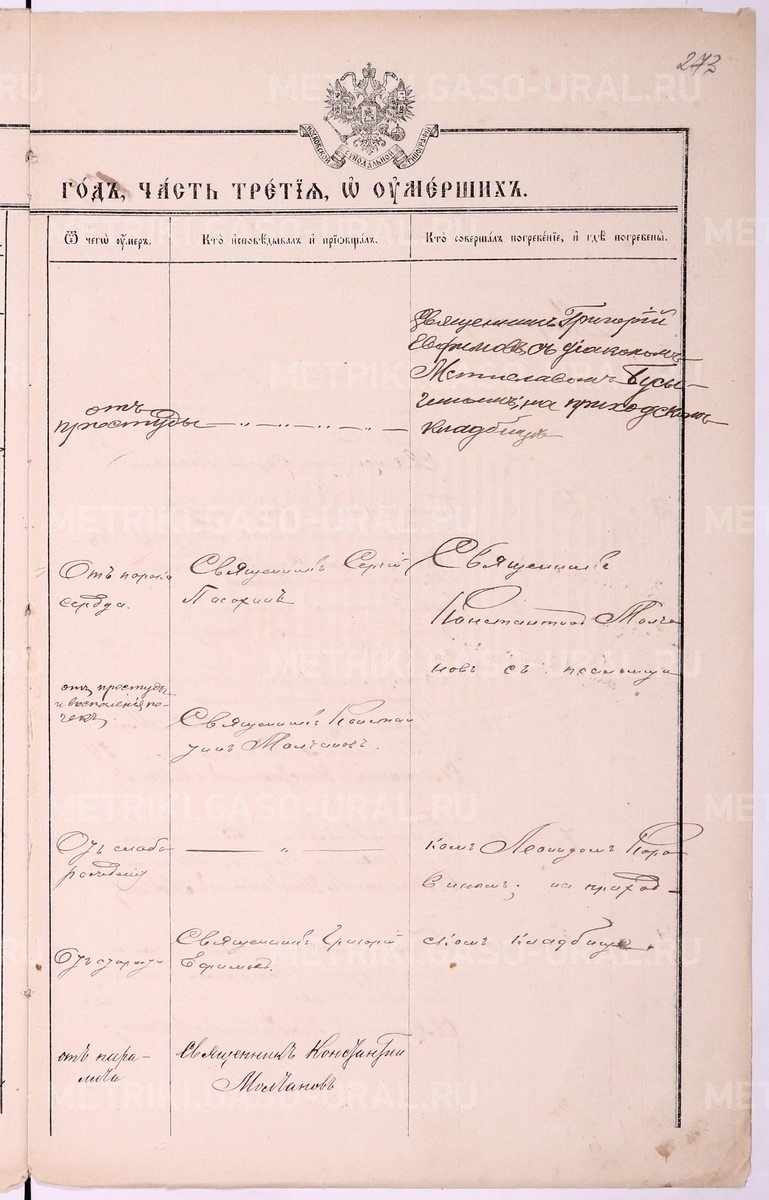 273
МОСКОВСКОЙ СѴНОДАЛЬНОЙ ТИПОГРАФІИ
ГОДЪ, ЧА́СТЬ ТРЕ́ТІѦ, Ѡ ОУМЕ́РШИХЪ.
Ѿ чегѡ̀ оу́меръ.
Кто̀ и҆сповѣ́дывалъ и҆ прїѡбща́лъ.
Кто̀ соверша́лъ погребе́нїе, и҆ гдѣ̀ погребены̀.
отъ
простуды — „ — „ — „ —
Священникъ Григорій
Ефимовъ съ діакономъ
Мстиславомъ Бусы-
гинымъ, на приходскомъ
кладбищѣ
Отъ порока
сердца.
Священникъ Сергій
Пасохинъ
Священникъ
Константинъ Молча
новъ съ псаломщи
отъ простуды
и воспаленія по-
чекъ
Священникъ Конста
тинъ Молчановъ.
Отъ слабо
рожденія
— „ —
комъ Леонидомъ Коро
винымъ; на приход-
Отъ старости
Священникъ Григорій
Ефимовъ.
скомъ кладбищѣ.
отъ пара-
лича
священникъ Константинъ
Молчановъ
METRIKI.GASO-URAL.RU